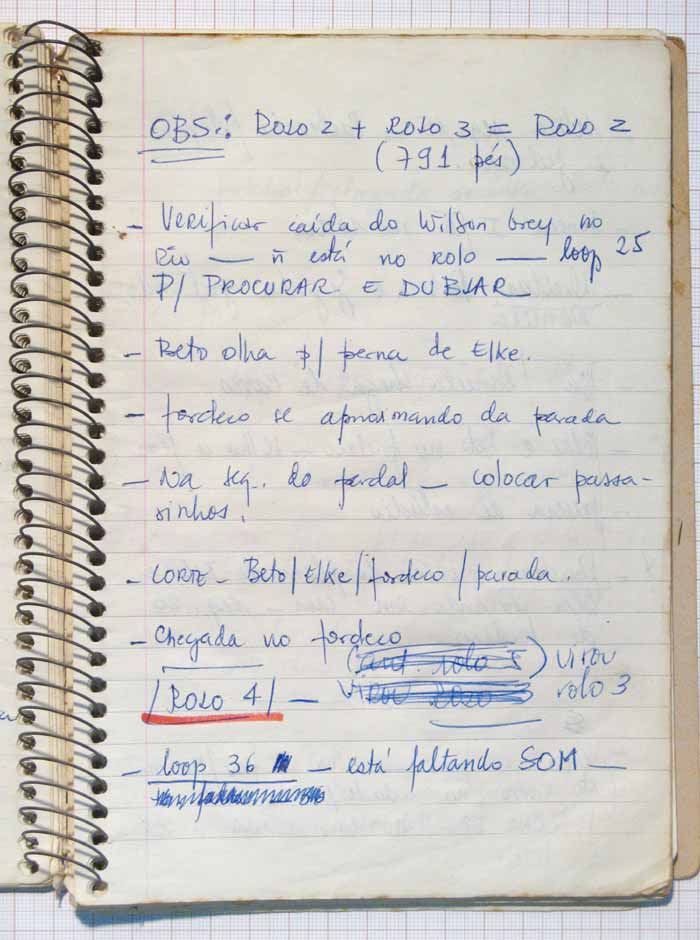 OBS.: ROLO 2 + ROLO 3 = ROLO 2
(791 pés)
- Verificar caída do Wilson Grey no
Rio — ñ está no rolo — loop 25
P/ PROCURAR E DUBLAR
- Beto olha p/ perna de Elke.
- fordeco se aproximando da parada
- Na seq. do pardal — colocar passa-
rinhos.
- CORTE - Beto/Elke/fordeco/parada.
- Chegada no fordeco
(ant. rolo 5) virou
/ROLO 4/ — virou rolo rolo 3
- loop 36 — está faltando SOM —